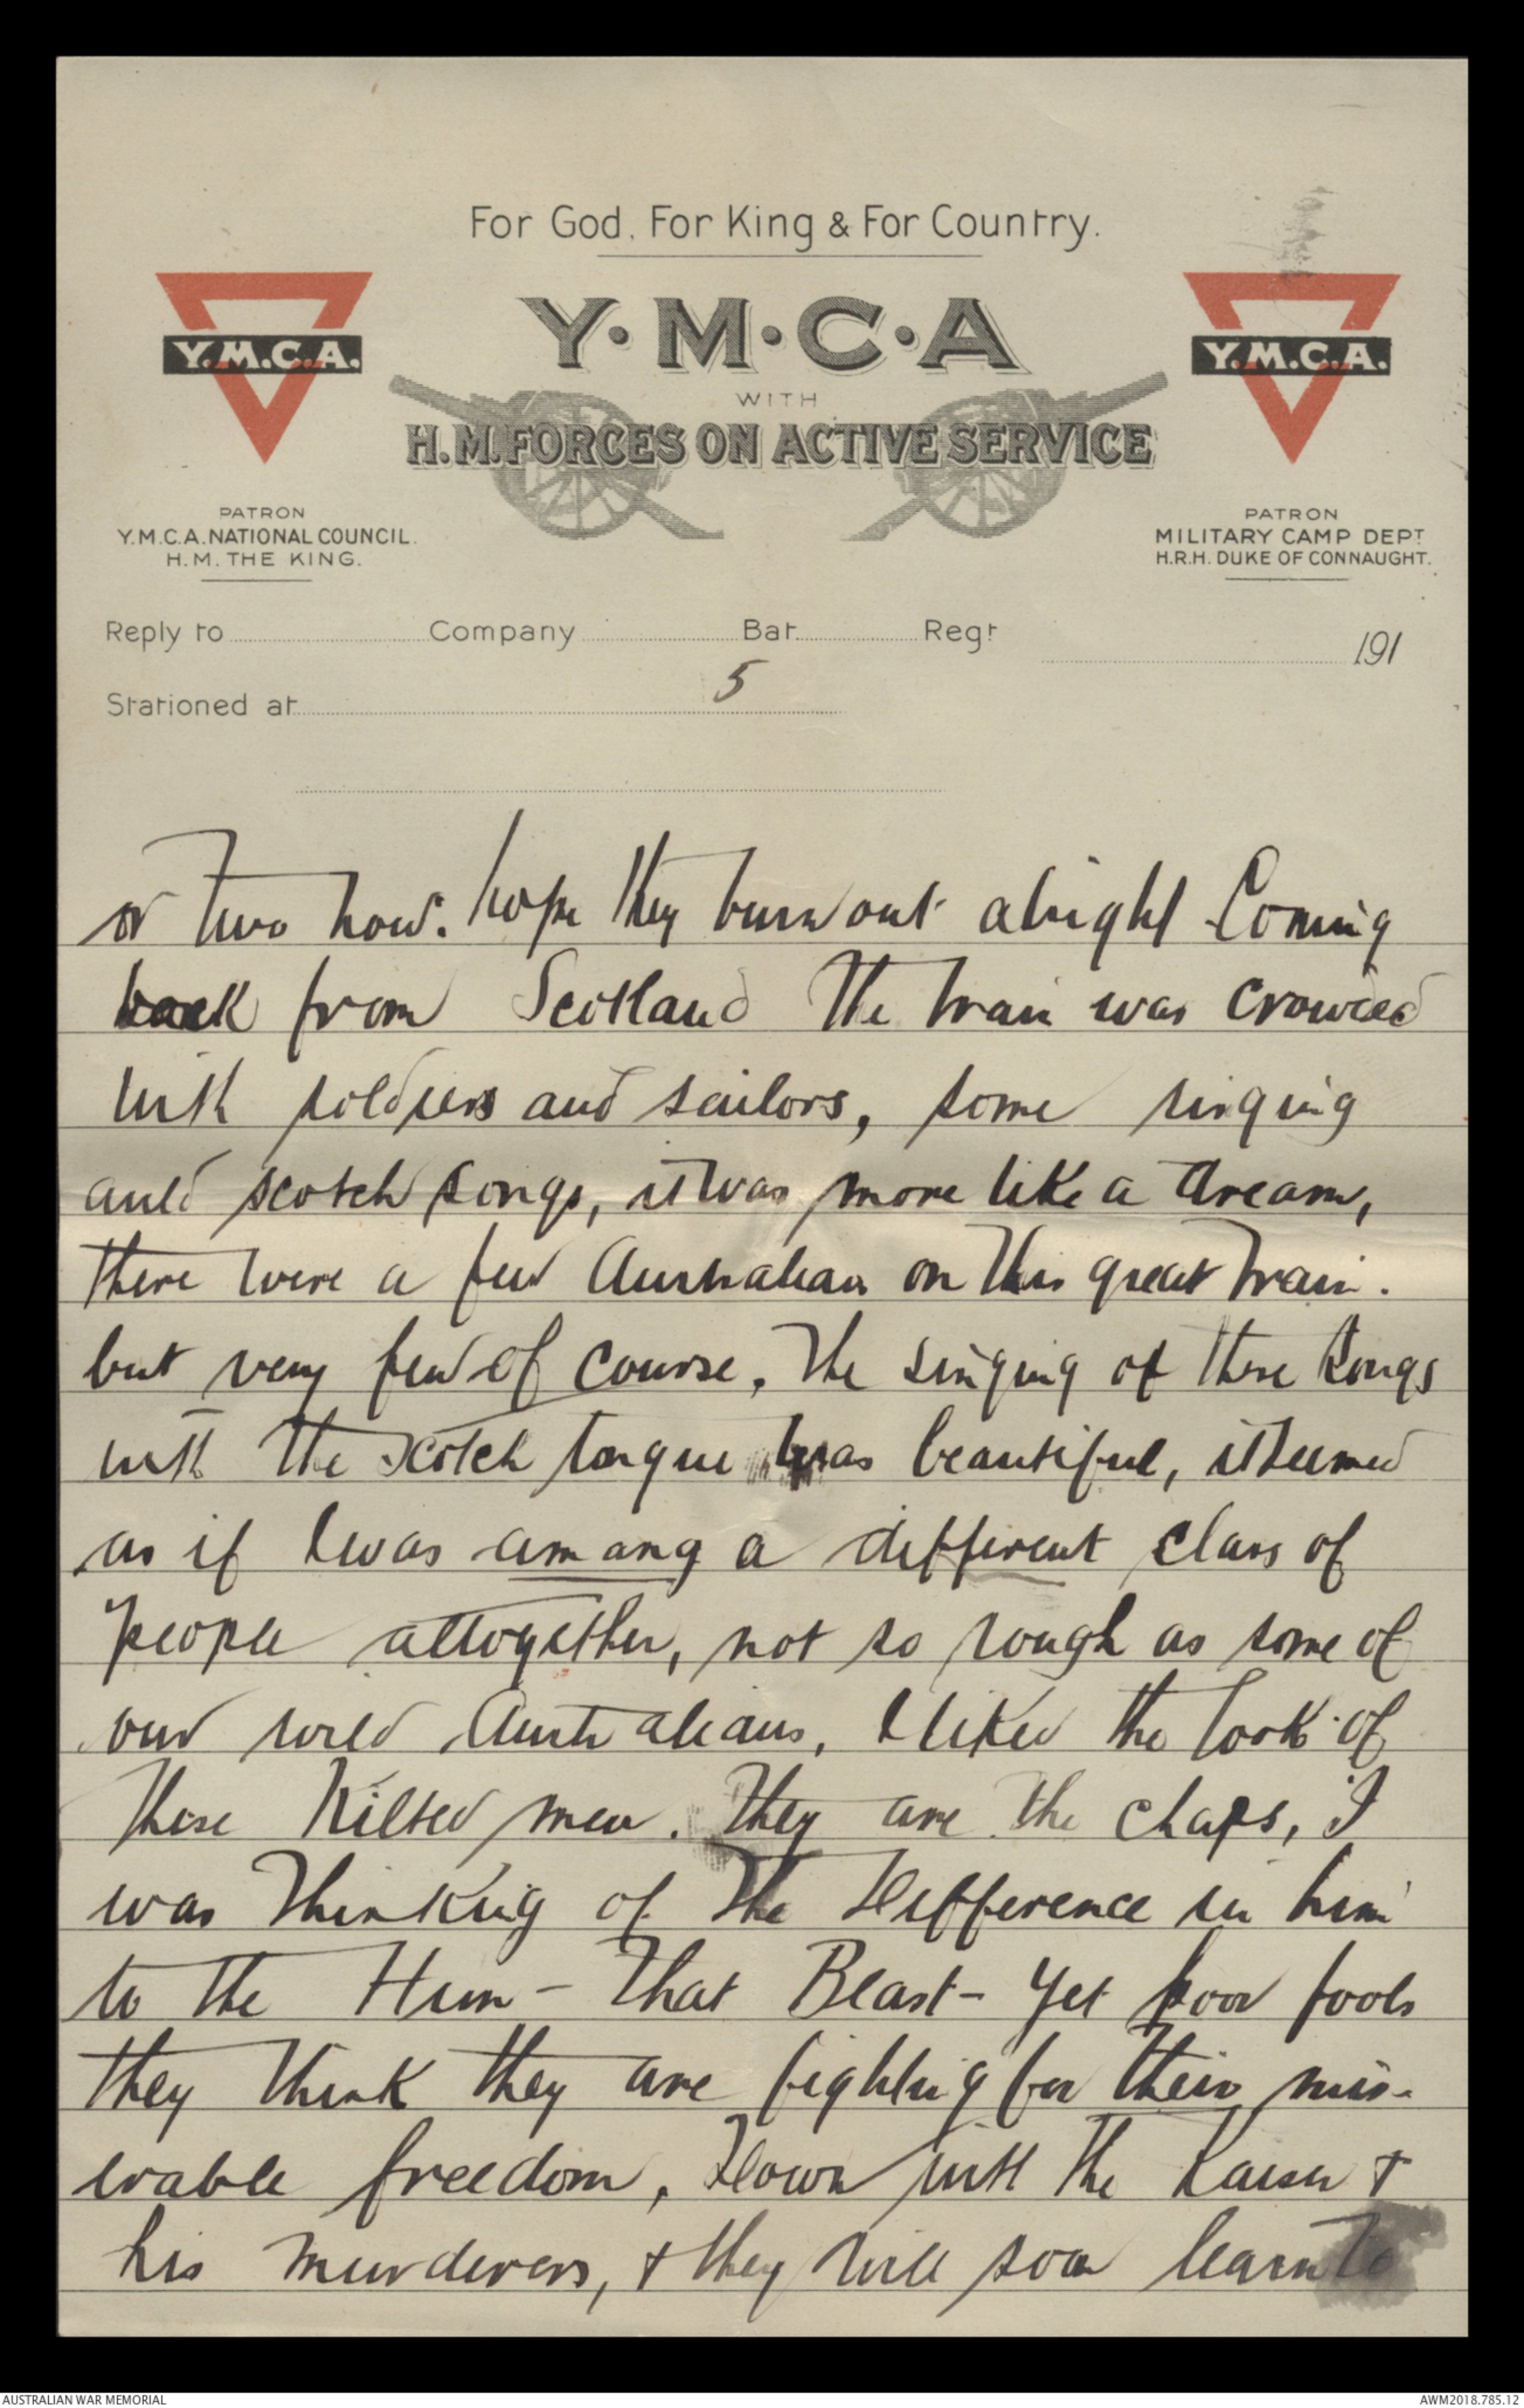 For God, For King & For Country.
Y·M·C·A
WITH
H.M. FORCES ON ACTIVE SERVICE
Y.M.C.A.
Y.M.C.A.
PATRON
Y.M.C.A. NATIONAL COUNCIL.
H.M. THE KING.
PATRON
MILITARY CAMP DEPT
H.R.H. DUKE OF CONNAUGHT.
Reply to Company Bat. Regt 191
Stationed at 5
or two now. hope they turn out alright Coming
back from Scotland the train was crowded
with soldiers and sailors, some singing
auld scotch songs, it was more like a dream,
there were a few Australian on this great train.
but very few of course. The singing of those songs
with the scotch tongue was beautiful, it seemed
as if I was among a different class of
people altogether, not so rough as some of
our wild Australians, I liked the look of
these Kilted men. They are the chaps, I
was thinking of the difference in him
to the Hun - that Beast - yet poor fools
they think they are fighting for their mis-
erable freedom, Down with the Kaiser +
his murderers, + they will soon learn to
AUSTRALIAN WAR MEMORIAL
AWM2018.785.12